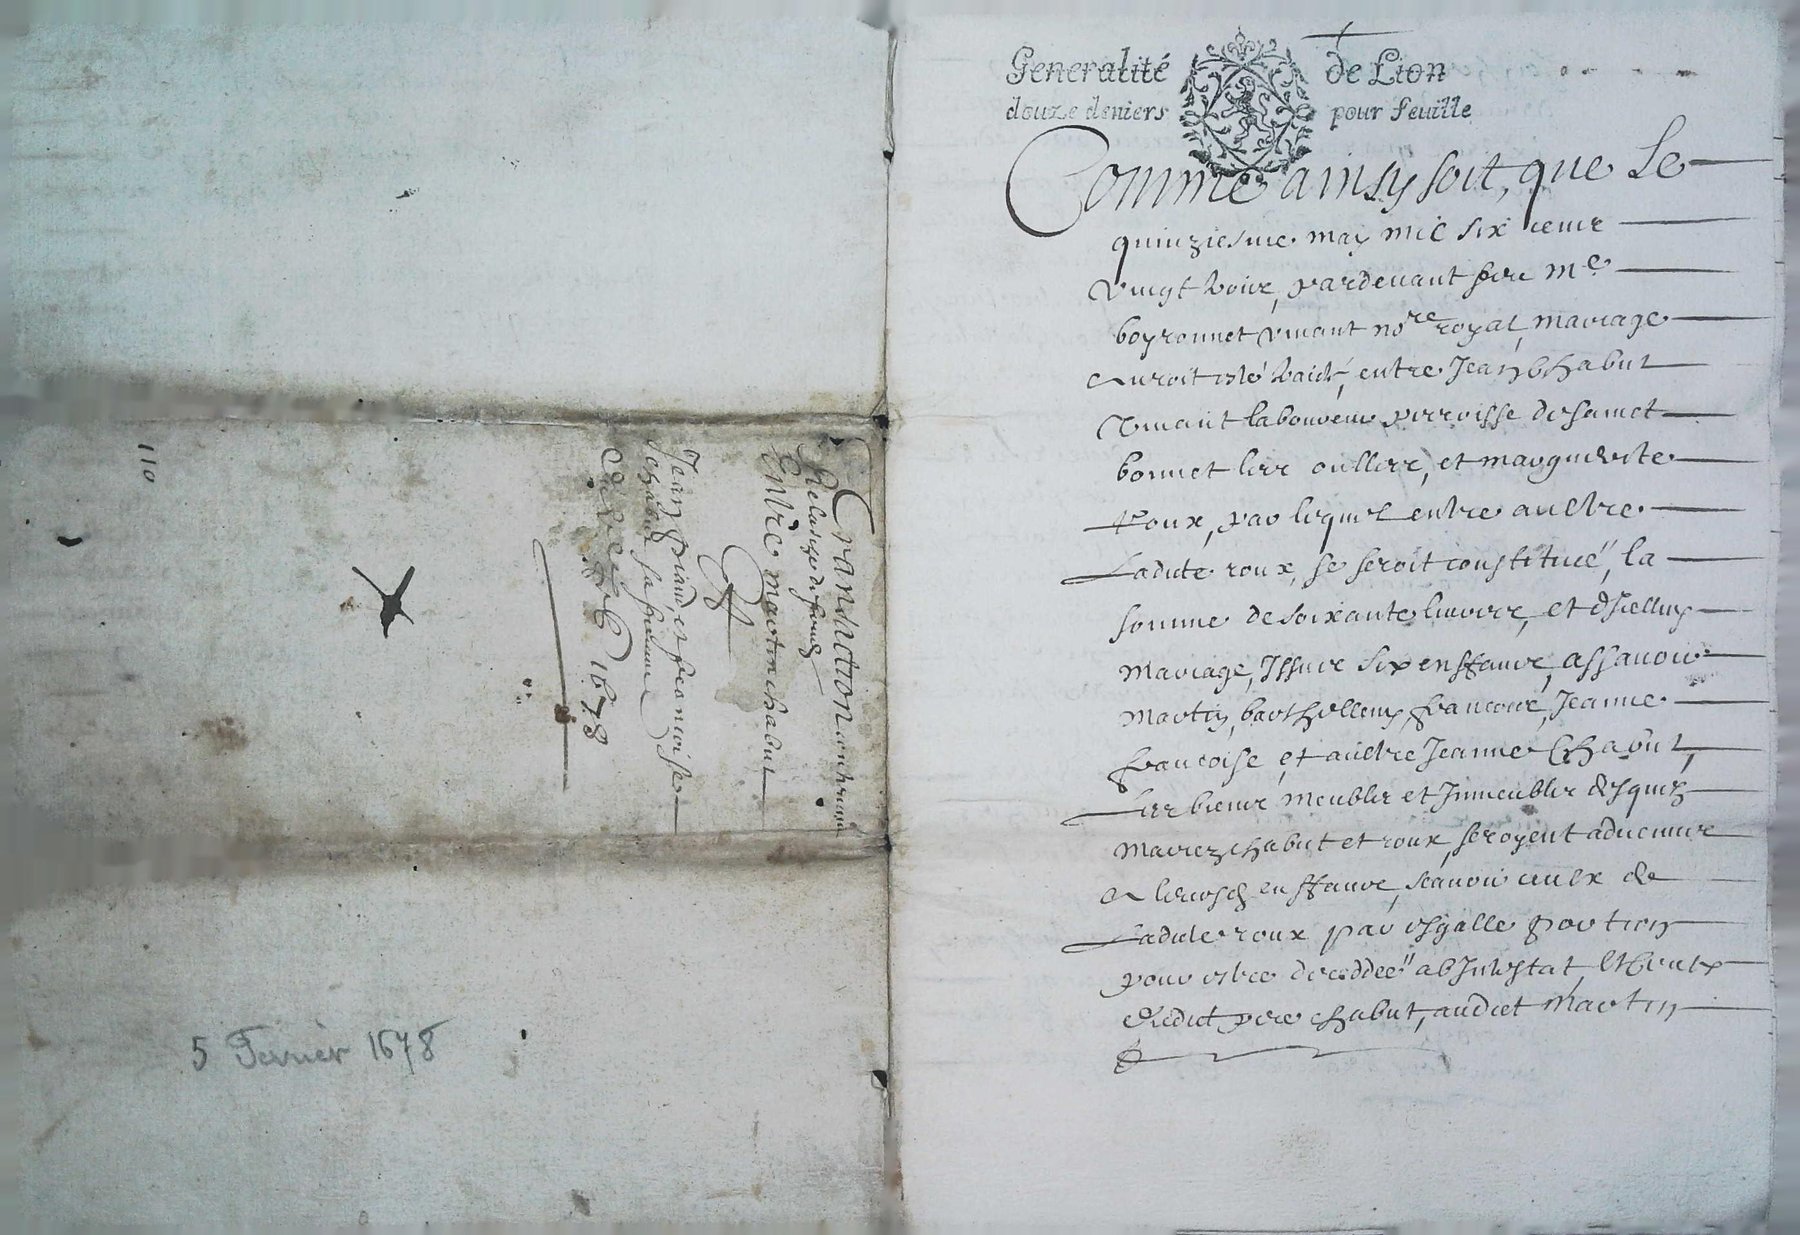 110
Transaction contenant
Relasche de fondz
Entre martin chabut
Et
Jean piard, et francoise
chabut sa femme
1678
5 Fevrier 1678
Generalité de Lion
douze deniers pour feuille
Comme ainsy soit, que Le
quinziesme may mil six centz
vingt pardevant feu Me
boyronnet vivant nore royal, mariage
auroit esté entre Jean Chabut
vivant laboureur perroisse de sainct
bonnet les oulles, et marguerite
roux, par lequel entre aultre
Ladite roux, se seroit constituée, la
somme de soixante livres, et d'icelluy
mariage, Issus six enffans, assavoir
Martin, barthellemy, francois, Jeanne
francoise, et aultre Jeanne Chabut,
Les biens, meubles et Immeubles desquelz
mariez chabut et roux, seroyent advenus
a leursd. enffans, scavoir ceulx de
Ladite roux par esgalle portion
pour estre deceddée ab Intestat et ceulx
dudict pere chabut, audict Martin